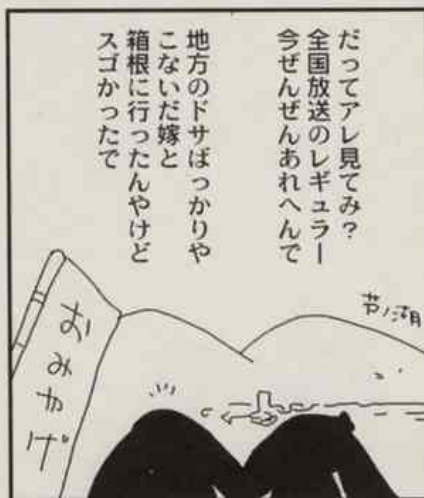 だってアレ見てみ？
全国放送のレギュラー
今ぜんぜんあれへんで
地方のドサばっかりや
こないだ嫁と
箱根に行ったんやけど
スゴかったで
芦ノ湖
おみやげ